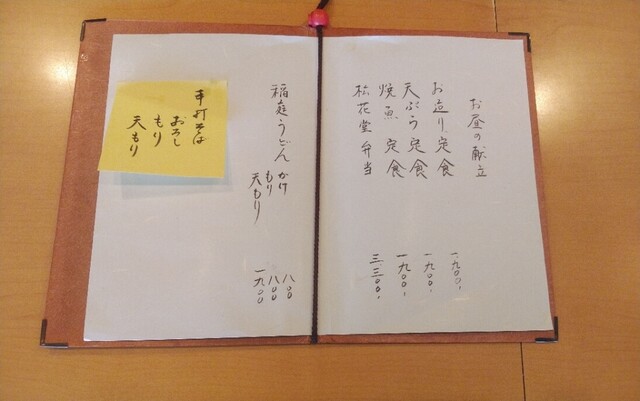 お昼の献立
お造り定食 一、九〇〇、
天ぷら定食 一、九〇〇、
焼魚定食 一、九〇〇、
松花堂弁当 三、三〇〇、
稲庭うどん かけ 八〇〇
もり 八〇〇
天もり 一九〇〇
手打そば
おろし
もり
天もり